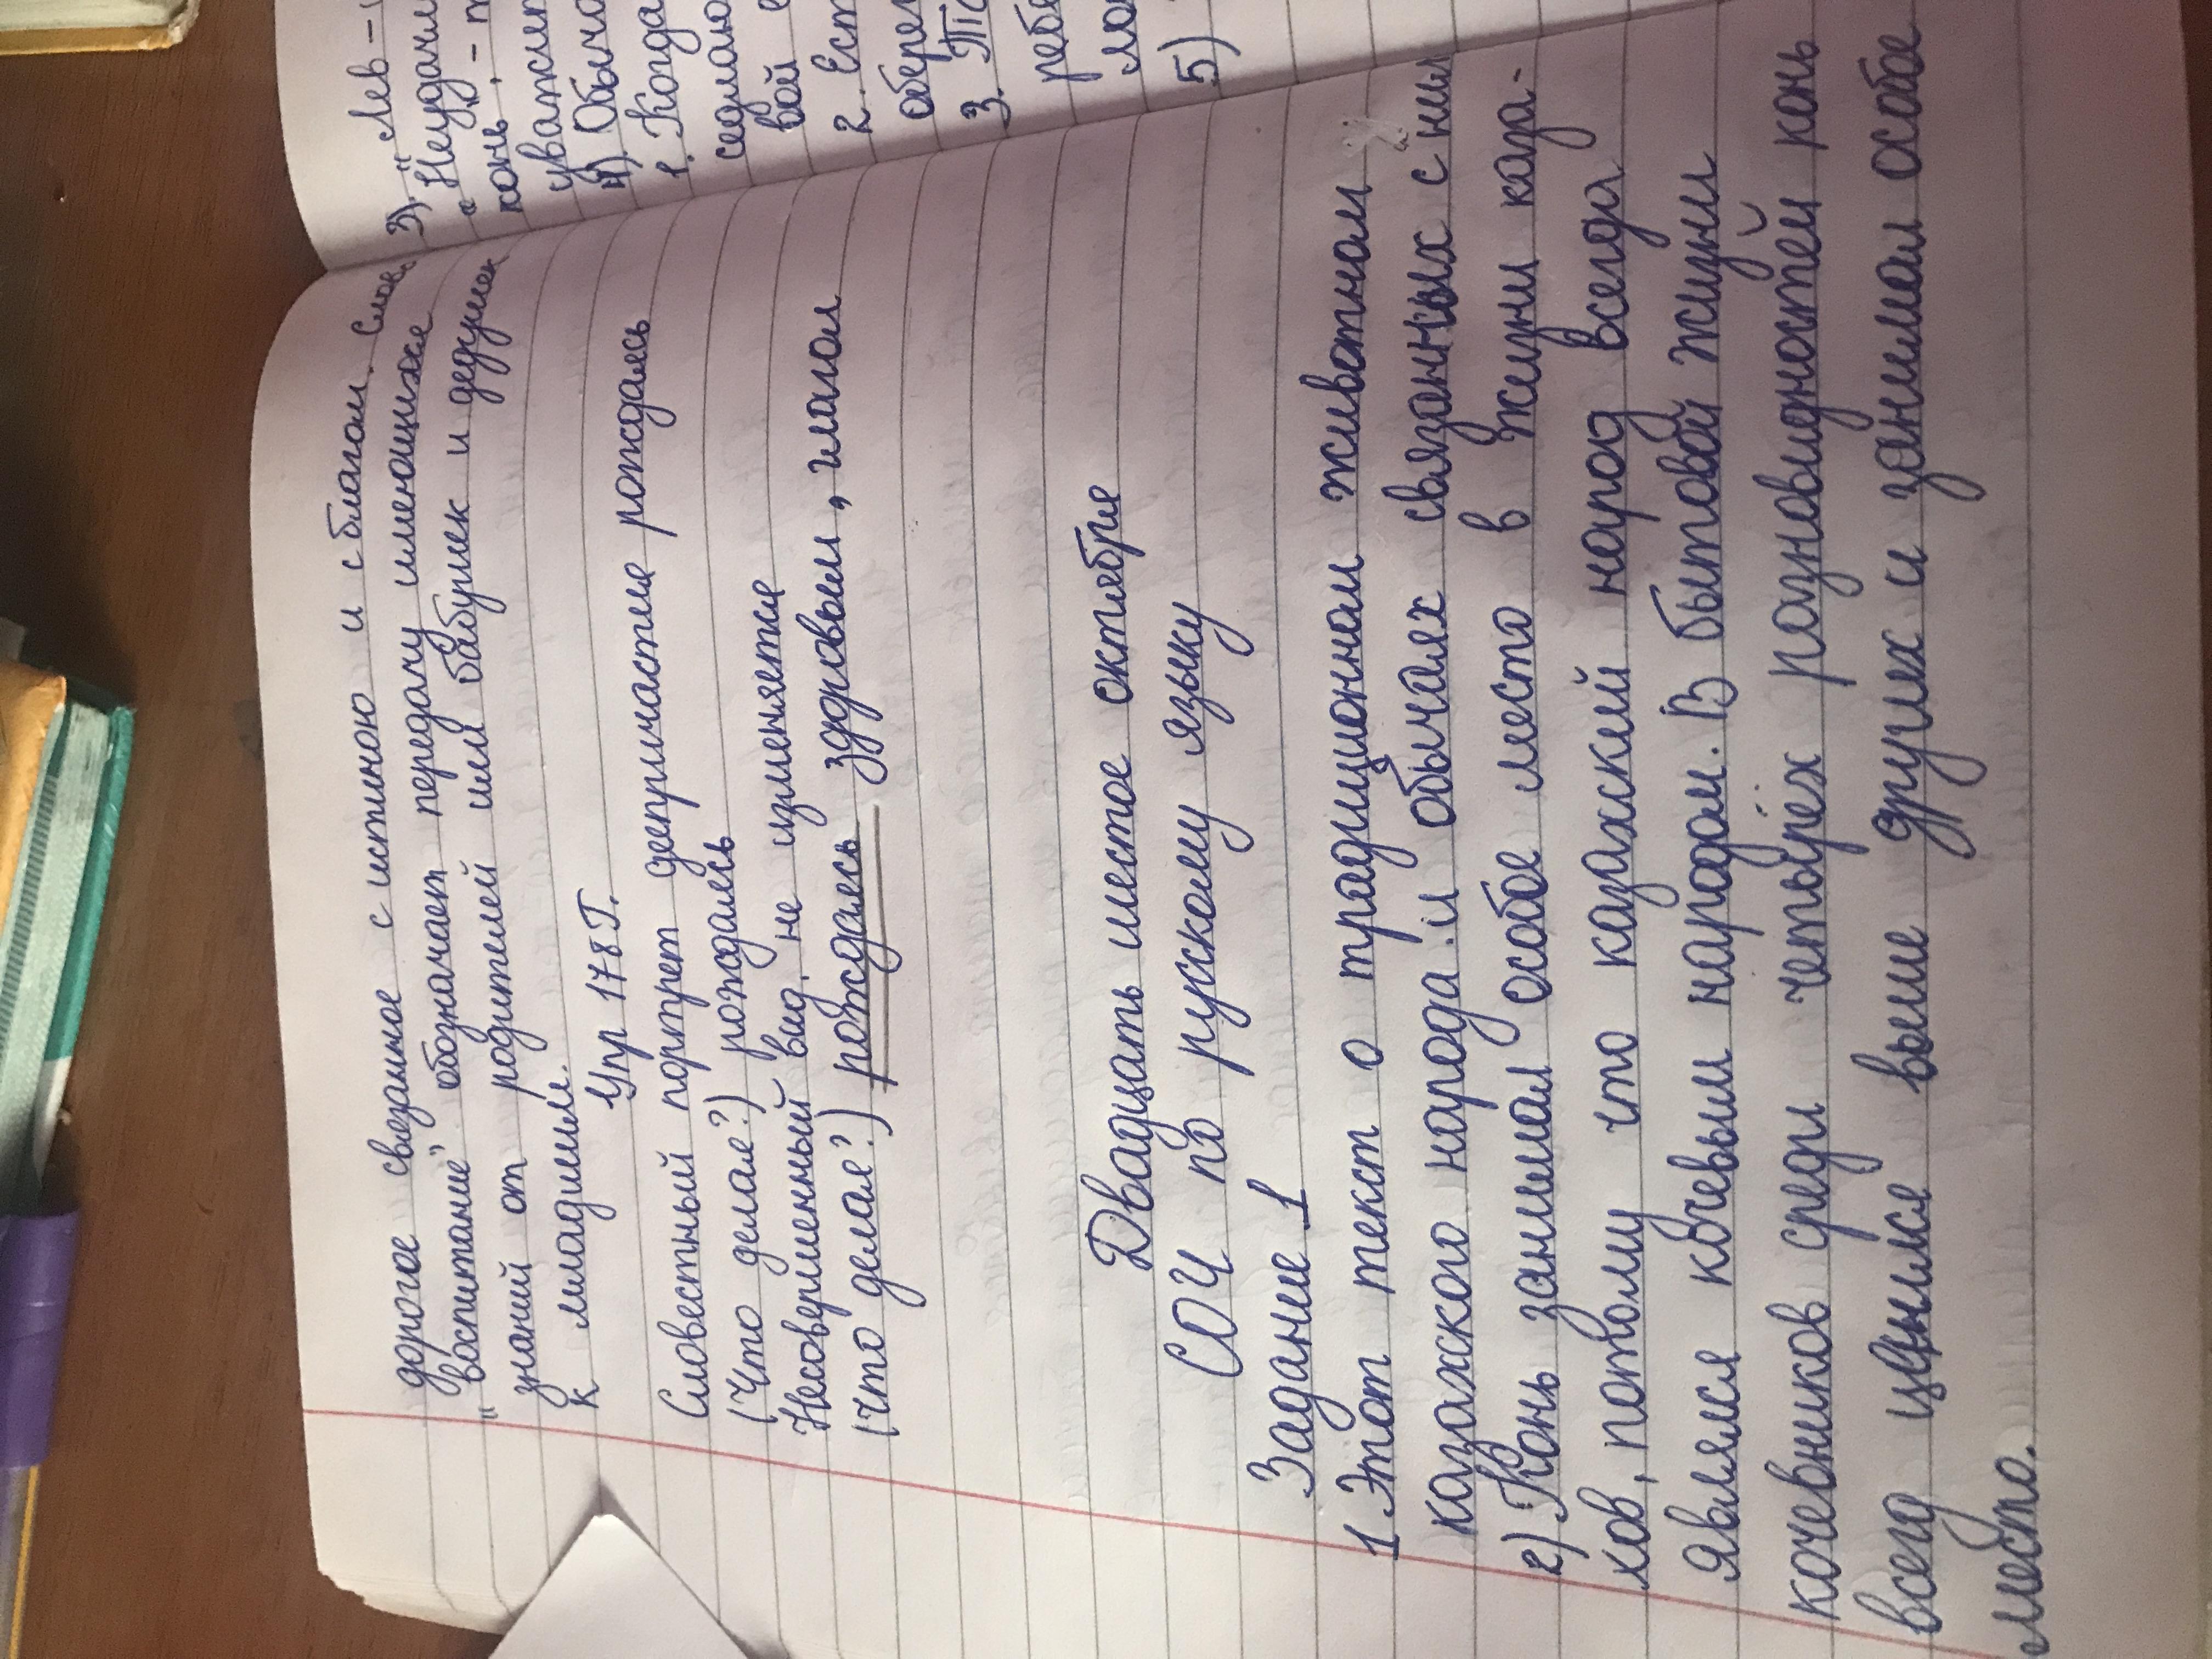 дорогое связаное с истиною и с благом. Слово
"воспитание" обозначает передачу имеющихже
знаний от родителей или бабушек и дедушек
к младшим.
Упр 178 Г.
Словестный портрет деепричастие рождаясь
(Что делая?) рождаясь
Несовершенный вид, не изменяетже
(что делая?) рождаясь здоровым, глагол
Двадцать шестое октебрие
СОЧ по рускому языку
Задание 1
1. Этот текст о традиционном животном
казахкого народа и обычаях связанных с ним
2) Конь занимал особое место в жизни каза-
хов, потому что казахский народ всегда
являлся кочевым народом. В бытовой жизни
кочевников среди четырёх разновидностей конь
всего ценился выше других и занимал особое
место.
3). "Лев -
"Неудачли
конь, - п
уважит
4). Обычо
1. Когда
седлаю
вой
2. Ест
обере
3. 
ребе
5)